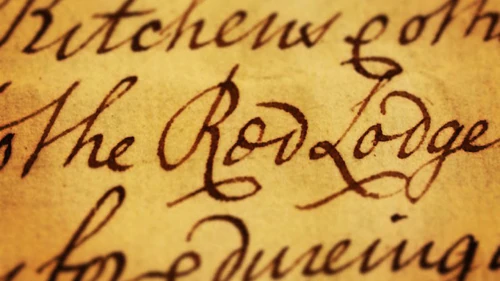 Kitchens & oth
the Red Lodge
for & dureing